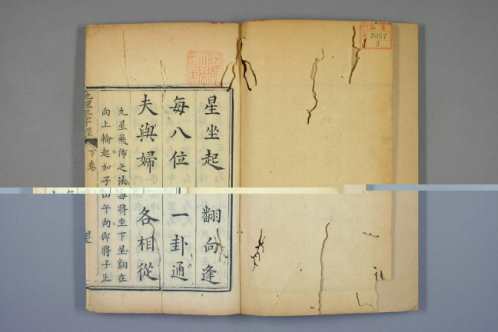 星坐起 翻向逢
每八位 一卦通
夫與婦 各相從
九星飛佈之法每將坐下星翻在
向上輪起如子山午向卽將子上